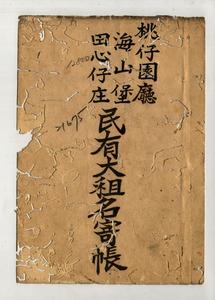 桃仔園廳
海山堡
田心仔庄
民有大租名寄帳